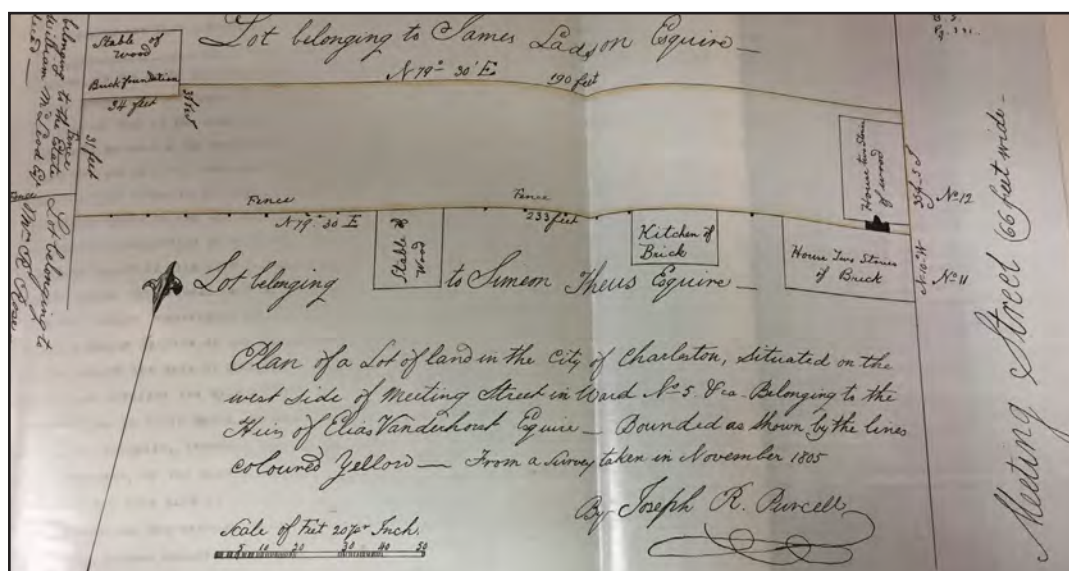 Lot belonging to James Ladson Esquire
N 79° 30' E
190 feet
Stable of
Wood
Brick foundation
34 feet
33 feet
31 feet
Fence
belonging to the Estate
William McLeod Esqr
Fence
Lot belonging to
Rose
House two Stories
of wood
No 12
No 11
Fence
Fence
N 79° 30 E
233 feet
Stable of
Wood
Kitchen of
Brick
House Two Stories
of Brick
Lot belonging to Simeon Theus Esquire
Meeting Street (66 feet wide
Plan of a Lot of land in the City of Charleston, Situated on the
west side of Meeting Street in Ward No 5 &ca. Belonging to the
Heirs of Elias Vanderhorst Esquire Bounded as Shown by the lines
coloured Yellow From a Survey taken in November 1805
By Joseph R. Purcell
Scale of Feet 20 pr Inch.
5 10 20 30 40 50